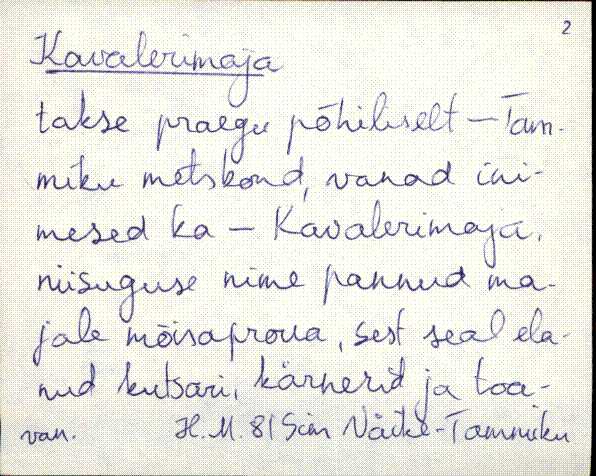 2
Kavalerimaja
takse praegu põhiliselt – Tam-
miku metskond, vanad ini-
mesed ka – Kavalerimaja,
niisuguse nime pannud ma-
jale mõisaproua, sest seal ela-
nud kutsari, kärnerid ja toa-
van. H. M. 81 Sim Väike-Tammiku